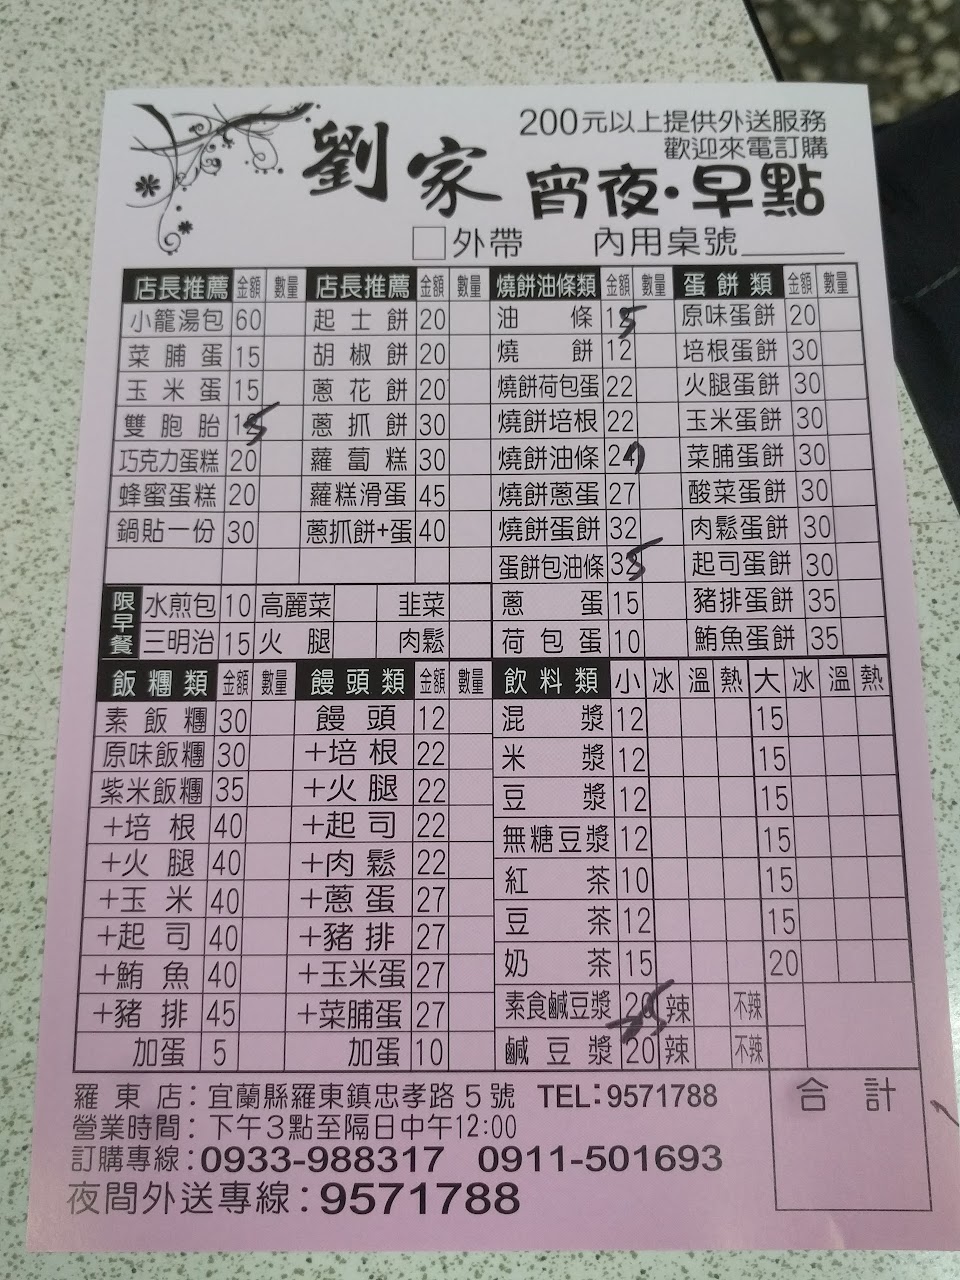 200元以上提供外送服務
歡迎來電訂購
劉家 宵夜・早點
□外帶 內用桌號
店長推薦 金額 數量 店長推薦 金額 數量 燒餅油條類 金額 數量 蛋餅類 金額 數量
小籠湯包 60 起士餅 20 油條 15 原味蛋餅 20
菜脯蛋 15 胡椒餅 20 燒餅 12 培根蛋餅 30
玉米蛋 15 蔥花餅 20 燒餅荷包蛋 22 火腿蛋餅 30
雙胞胎 15 蔥抓餅 30 燒餅培根 22 玉米蛋餅 30
巧克力蛋糕 20 蘿蔔糕 30 燒餅油條 2 菜脯蛋餅 30
蜂蜜蛋糕 20 蘿糕滑蛋 45 燒餅蔥蛋 27 酸菜蛋餅 30
鍋貼一份 30 蔥抓餅+蛋 40 燒餅蛋餅 32 肉鬆蛋餅 30
蛋餅包油條 35 起司蛋餅 30
限早餐 水煎包 10 高麗菜 韭菜 蔥蛋 15 豬排蛋餅 35
三明治 15 火腿 肉鬆 荷包蛋 10 鮪魚蛋餅 35
飯糰類 金額 數量 饅頭類 金額 數量 飲料類 小 冰 溫 熱 大 冰 溫 熱
素飯糰 30 饅頭 12 混漿 12 15
原味飯糰 30 +培根 22 米漿 12 15
紫米飯糰 35 +火腿 22 豆漿 12 15
+培根 40 +起司 22 無糖豆漿 12 15
+火腿 40 +肉鬆 22 紅茶 10 15
+玉米 40 +蔥蛋 27 豆茶 12 15
+起司 40 +豬排 27 奶茶 15 20
+鮪魚 40 +玉米蛋 27 素食鹹豆漿 25 辣 不辣
+豬排 45 +菜脯蛋 27 鹹豆漿 20 辣 不辣
加蛋 5 加蛋 10
合計
羅東店：宜蘭縣羅東鎮忠孝路5號 TEL:9571788
營業時間：下午3點至隔日中午12:00
訂購專線：0933-988317 0911-501693
夜間外送專線：9571788